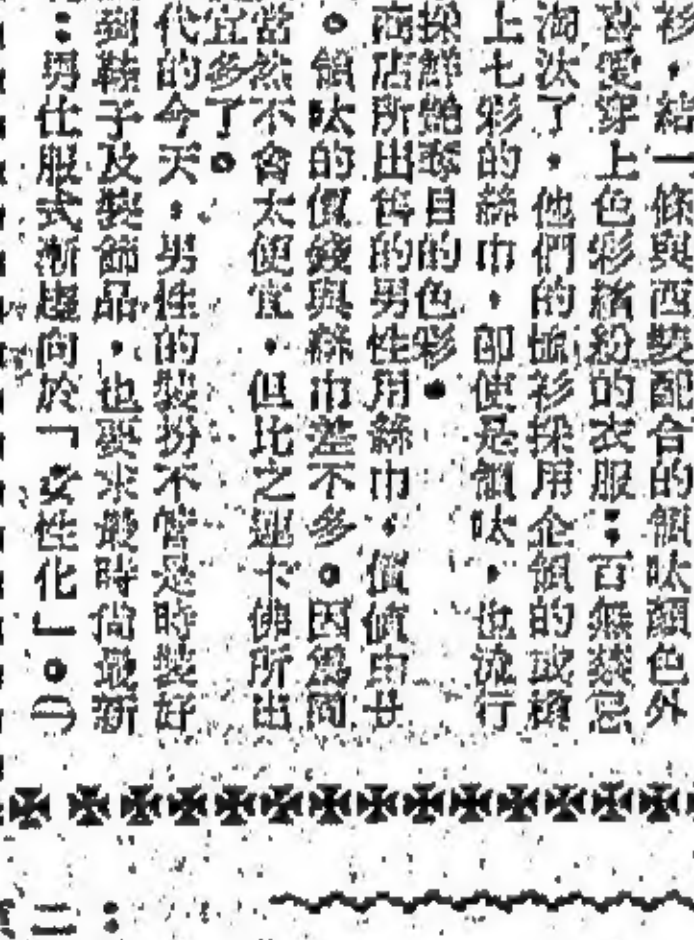 衫，結一條與西裝配合的領呔顏色外
喜愛穿上色彩繽紛的衣服；百無禁忌
淘汰了，他們的恤衫採用企領的或
上七彩的絲巾，即使是領呔，也流行
採鮮艷奪目的色彩。
商店所出售的男性用絲巾，價値由廿
。領呔的價錢與絲巾差不多。因爲同
當然不會太便宜，但比之連卡佛所出
宜多了。
代的今天，男性的裝扮不管是時裝好
到鞋子及裝飾品，也要求最時尚最新
：男仕服式漸趨向於「女性化」。（）
二：